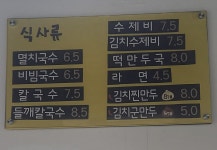 식사류
멸치국수 6.5
비빔국수 6.5
칼국수 7.5
들깨칼국수 8.5
수제비 7.5
김치수제비 7.5
떡만두국 8.0
라면 4.5
김치찐만두 8.0
김치군만두 5.0